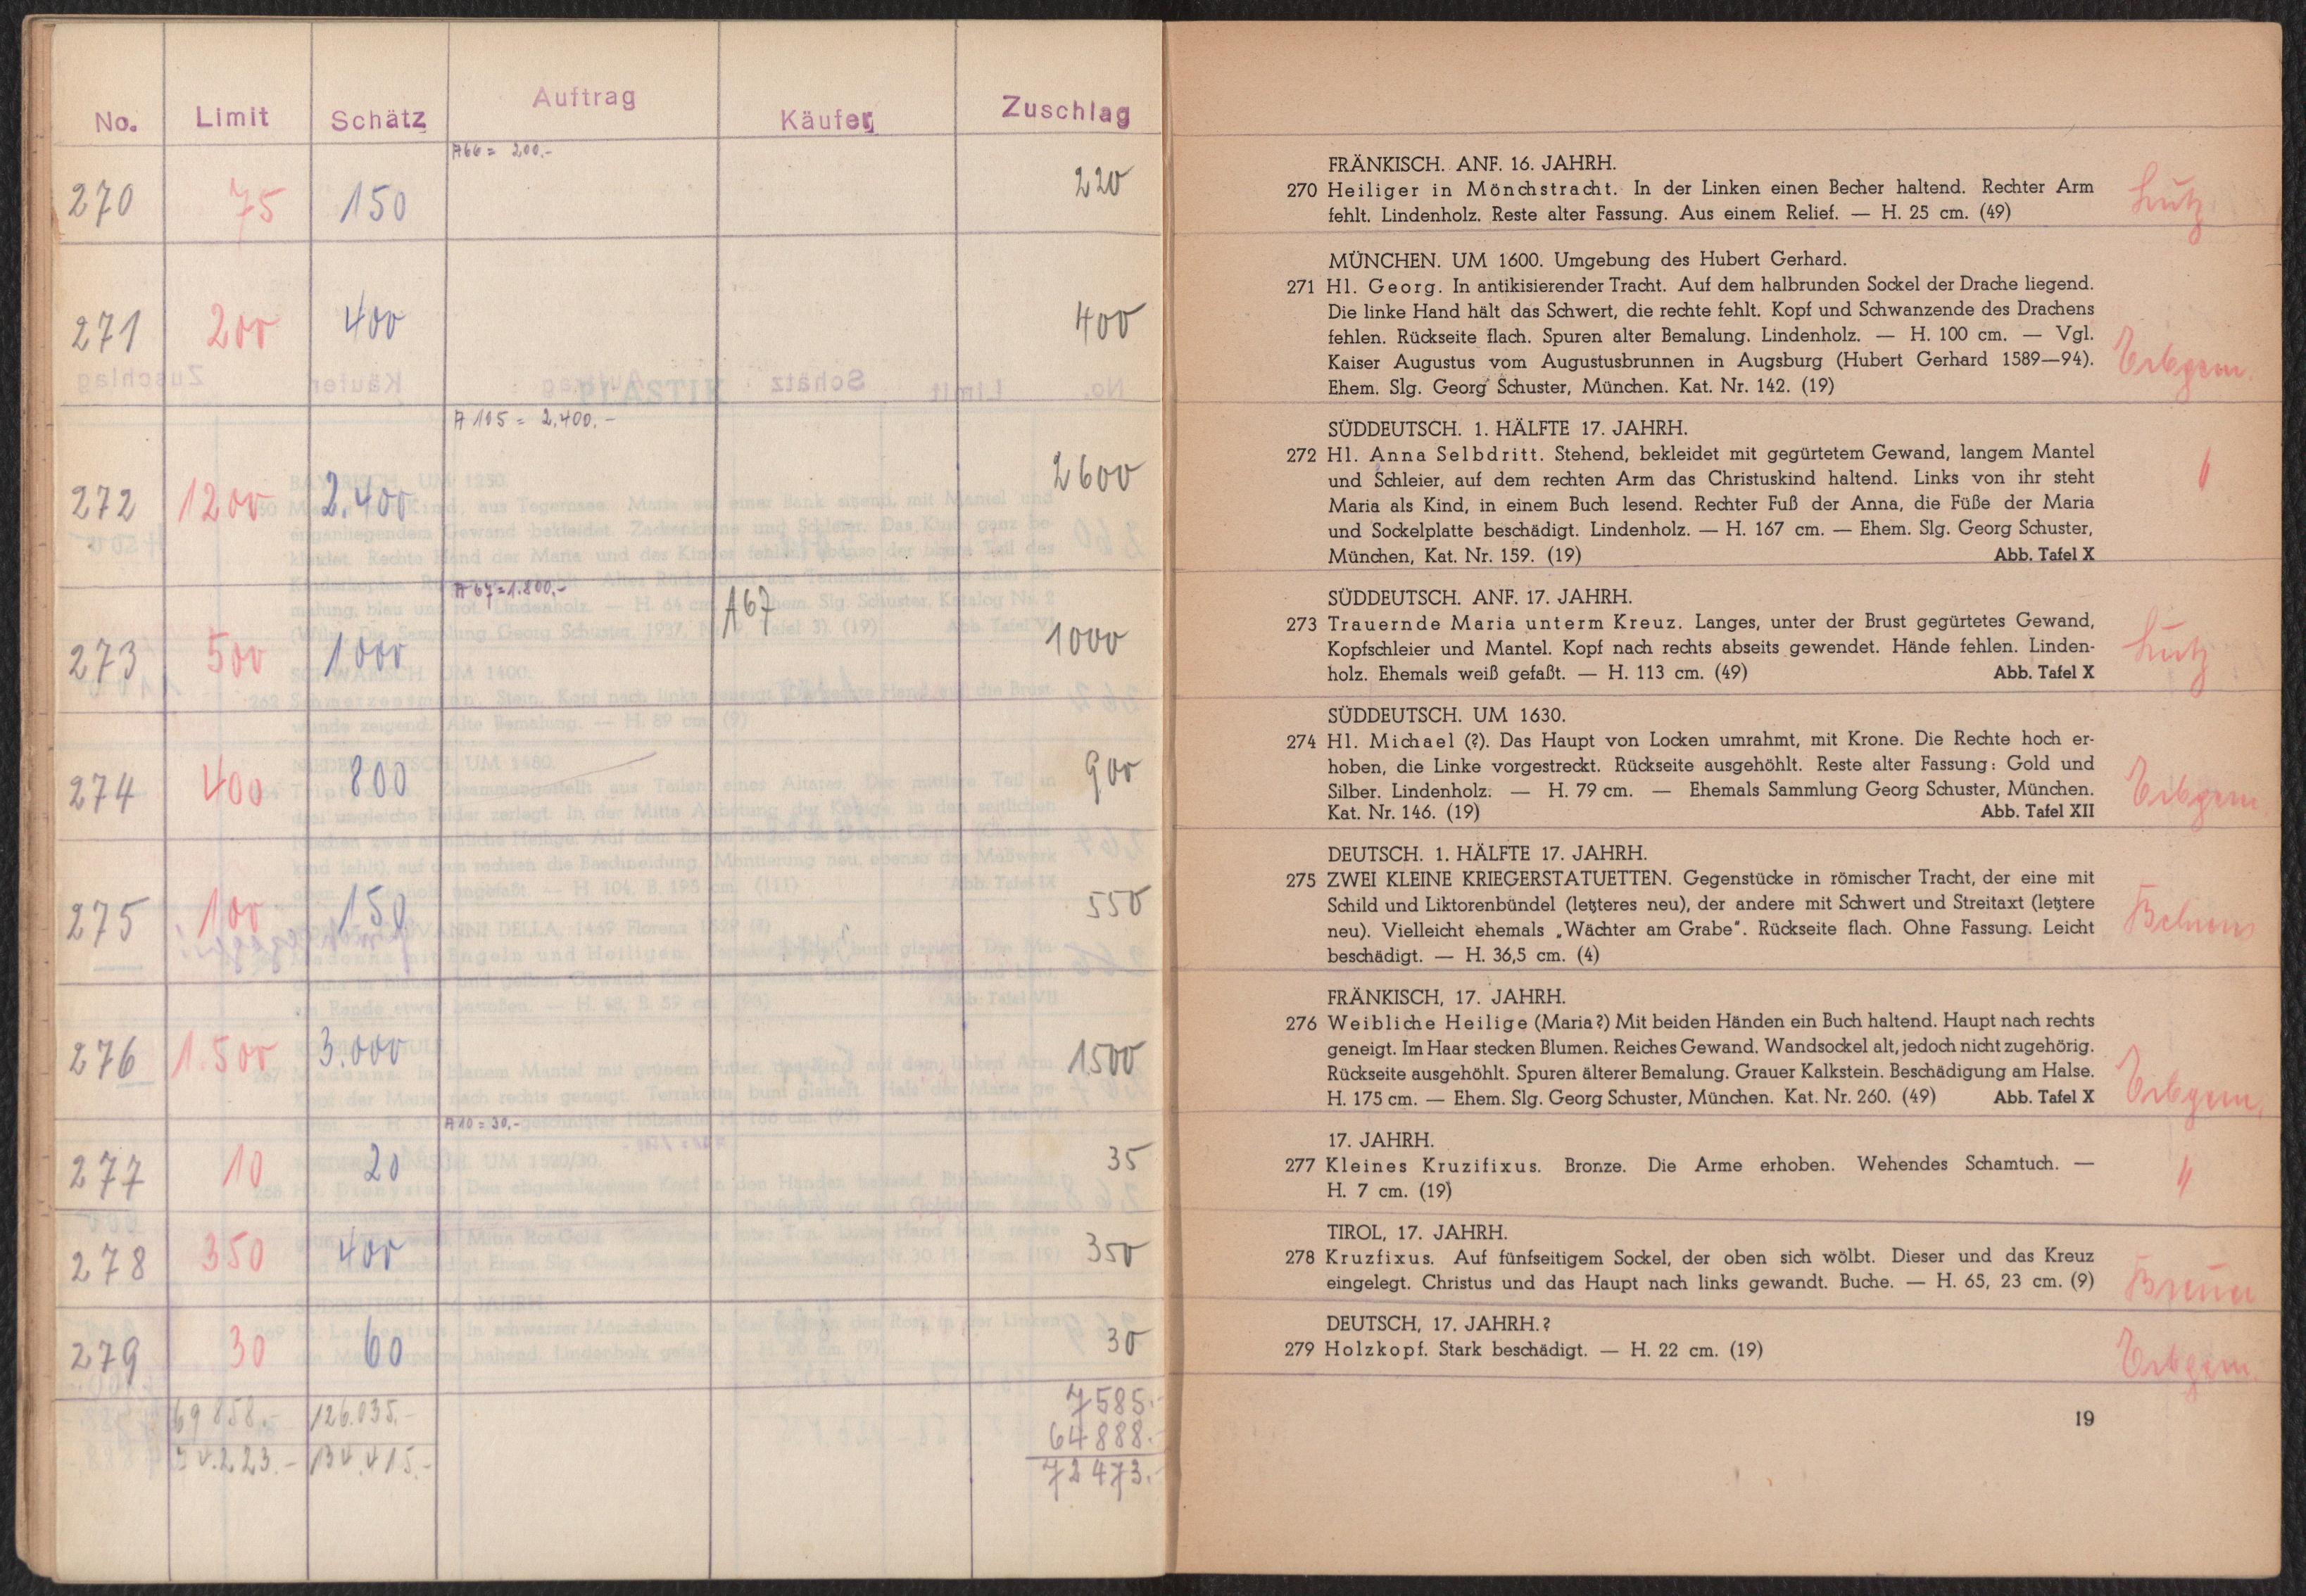 No. Limit Schätz Auftrag Käufer Zuschlag
A66 = 200.-
270 75 150 220
271 200 400 400
A 105 = 2.400.-
272 1200 2.400 2600
A 67 = 1.800.-
273 500 1000 A67 1000
274 400 800 900
275 100 150 550
276 1.500 3.000 1500
A10 = 30.-
277 10 20 35
278 350 400 350
279 30 60 30
69 858.- 126.035.- 7585.-
64888.-
134.415.- 72473.-
FRÄNKISCH. ANF. 16. JAHRH.
270 Heiliger in Mönchstracht. In der Linken einen Becher haltend. Rechter Arm
fehlt. Lindenholz. Reste alter Fassung. Aus einem Relief. — H. 25 cm. (49)
Lutz
MÜNCHEN. UM 1600. Umgebung des Hubert Gerhard.
271 Hl. Georg. In antikisierender Tracht. Auf dem halbrunden Sockel der Drache liegend.
Die linke Hand hält das Schwert, die rechte fehlt. Kopf und Schwanzende des Drachens
fehlen. Rückseite flach. Spuren alter Bemalung. Lindenholz. — H. 100 cm. — Vgl.
Kaiser Augustus vom Augustusbrunnen in Augsburg (Hubert Gerhard 1589—94).
Ehem. Slg. Georg Schuster, München. Kat. Nr. 142. (19)
SÜDDEUTSCH. 1. HÄLFTE 17. JAHRH.
272 Hl. Anna Selbdritt. Stehend, bekleidet mit gegürtetem Gewand, langem Mantel
und Schleier, auf dem rechten Arm das Christuskind haltend. Links von ihr steht
Maria als Kind, in einem Buch lesend. Rechter Fuß der Anna, die Füße der Maria
und Sockelplatte beschädigt. Lindenholz. — H. 167 cm. — Ehem. Slg. Georg Schuster,
München, Kat. Nr. 159. (19) Abb. Tafel X
SÜDDEUTSCH. ANF. 17. JAHRH.
273 Trauernde Maria unterm Kreuz. Langes, unter der Brust gegürtetes Gewand,
Kopfschleier und Mantel. Kopf nach rechts abseits gewendet. Hände fehlen. Linden-
holz. Ehemals weiß gefaßt. — H. 113 cm. (49) Abb. Tafel X
Lutz
SÜDDEUTSCH. UM 1630.
274 Hl. Michael (?). Das Haupt von Locken umrahmt, mit Krone. Die Rechte hoch er-
hoben, die Linke vorgestreckt. Rückseite ausgehöhlt. Reste alter Fassung: Gold und
Silber. Lindenholz. — H. 79 cm. — Ehemals Sammlung Georg Schuster, München.
Kat. Nr. 146. (19) Abb. Tafel XII
DEUTSCH. 1. HÄLFTE 17. JAHRH.
275 ZWEI KLEINE KRIEGERSTATUETTEN. Gegenstücke in römischer Tracht, der eine mit
Schild und Liktorenbündel (letzteres neu), der andere mit Schwert und Streitaxt (letztere
neu). Vielleicht ehemals „Wächter am Grabe“. Rückseite flach. Ohne Fassung. Leicht
beschädigt. — H. 36,5 cm. (4)
FRÄNKISCH, 17. JAHRH.
276 Weibliche Heilige (Maria?) Mit beiden Händen ein Buch haltend. Haupt nach rechts
geneigt. Im Haar stecken Blumen. Reiches Gewand. Wandsockel alt, jedoch nicht zugehörig.
Rückseite ausgehöhlt. Spuren älterer Bemalung. Grauer Kalkstein. Beschädigung am Halse.
H. 175 cm. — Ehem. Slg. Georg Schuster, München. Kat. Nr. 260. (49) Abb. Tafel X
17. JAHRH.
277 Kleines Kruzifixus. Bronze. Die Arme erhoben. Wehendes Schamtuch. —
H. 7 cm. (19)
TIROL, 17. JAHRH.
278 Kruzfixus. Auf fünfseitigem Sockel, der oben sich wölbt. Dieser und das Kreuz
eingelegt. Christus und das Haupt nach links gewandt. Buche. — H. 65, 23 cm. (9)
DEUTSCH, 17. JAHRH.?
279 Holzkopf. Stark beschädigt. — H. 22 cm. (19)
19